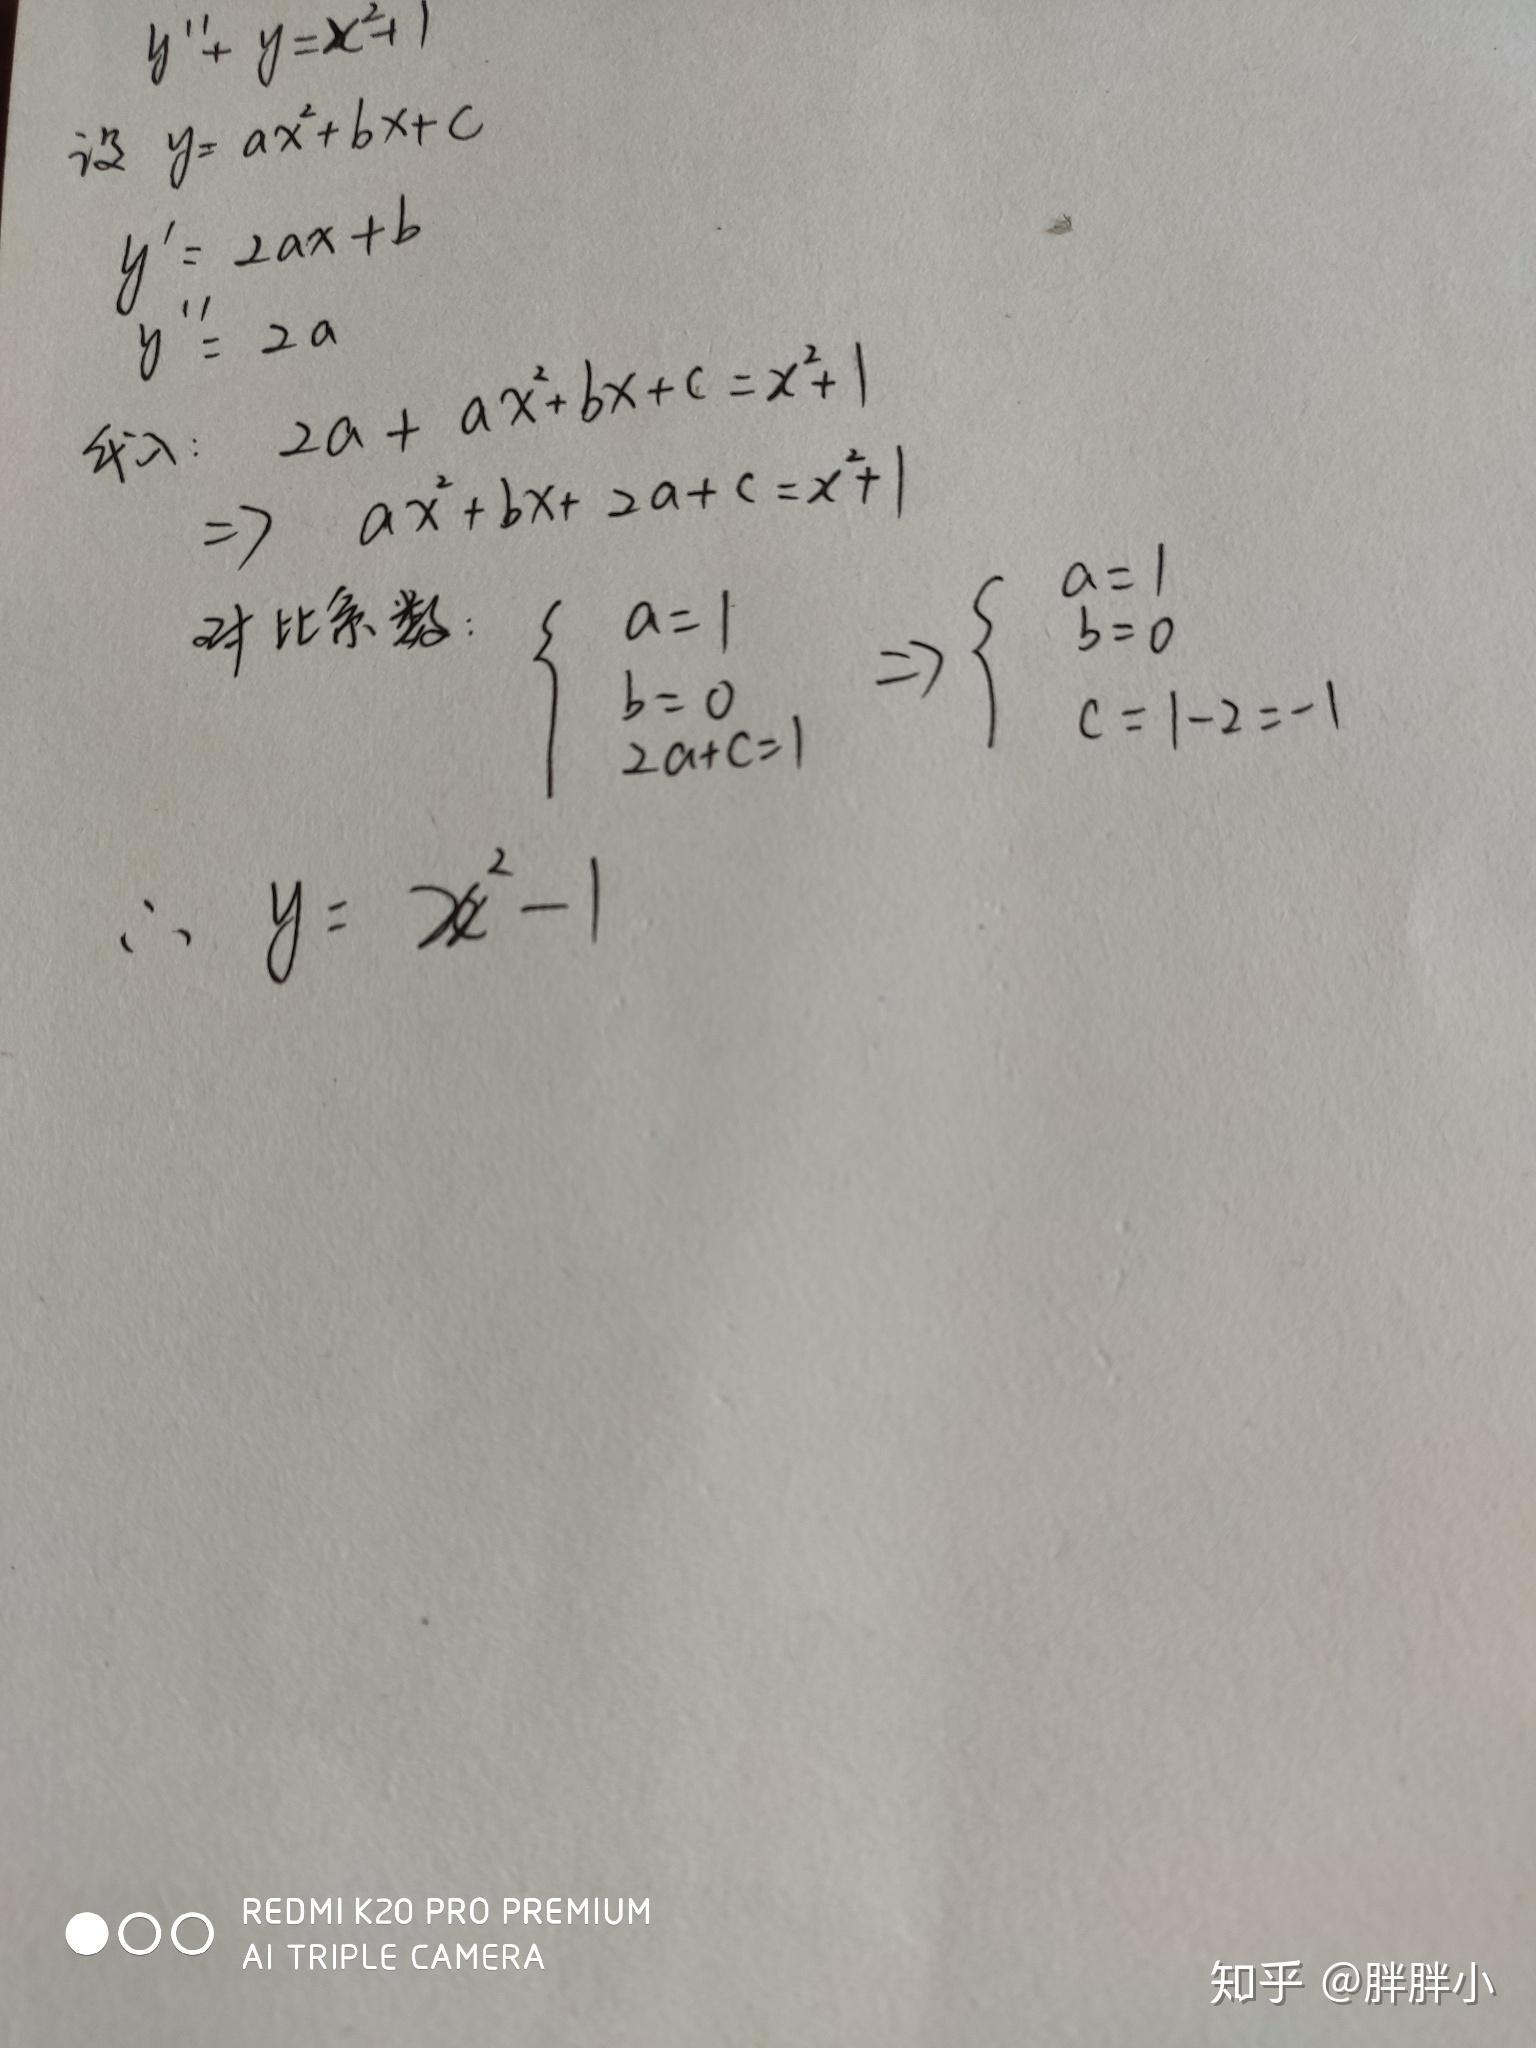 y''+y=x²+1
设 y=ax²+bx+c
y'=2ax+b
y''=2a
代入: 2a+ax²+bx+c=x²+1
=> ax²+bx+2a+c=x²+1
对比系数: { a=1 b=0 2a+c=1 => { a=1 b=0 c=1-2=-1
∴ y=x²-1
REDMI K20 PRO PREMIUM
AI TRIPLE CAMERA
知乎 @胖胖小